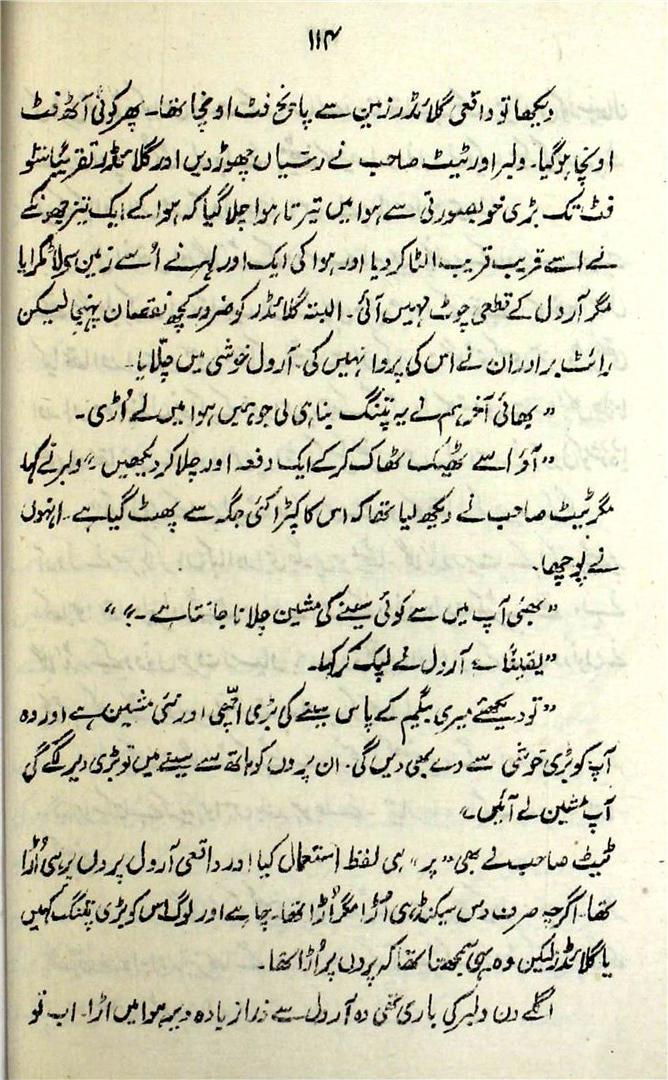 ۱۱۴
دیکھا تو واقعی گلائڈر زمین سے پانچ فٹ اونچا تھا۔ پھر کوئی آٹھ فٹ
اونچا ہو گیا۔ ولبر اور ٹیٹ صاحب نے رسّیاں چھوڑ دیں اور گلائڈر تقریباً سَو
فٹ تک بڑی خوبصورتی سے ہوا میں تیرتا ہوا چلا گیا کہ ہوا کے ایک تیز جھونکے
نے اسے قریب قریب الٹا کر دیا اور ہوا کی ایک اور لہر نے اُسے زمین سے لا ٹکرایا
مگر آرول کے قطعی چوٹ نہیں آئی۔ البتہ گلائڈر کو ضرور کچھ نقصان پہنچا لیکن
رائٹ برادران نے اس کی پروا نہیں کی۔ آرول خوشی میں چِلّایا۔
" بھائی آخر ہم نے یہ پتنگ بنا ہی لی جو ہمیں ہوا میں لے اُڑی۔
" آؤ اسے ٹھیک ٹھاک کر کے ایک دفعہ اور چلا کر دیکھیں " ولبر نے کہا
مگر ٹیٹ صاحب نے دیکھ لیا تھا کہ اس کا کپڑا کئی جگہ سے پھٹ گیا ہے۔ انہوں
نے پوچھا۔
" بھئی آپ میں سے کوئی سینے کی مشین چلانا جانتا ہے ۔؟ "
" یقیناً " آرول نے لپک کر کہا۔
" تو دیکھئے میری بیگم کے پاس سینے کی بڑی اچھی اور نئی مشین ہے اور وہ
آپ کو بڑی خوشی سے دے بھی دیں گی۔ ان پروں کو ہاتھ سے سینے میں تو بڑی دیر لگے گی
آپ مشین لے آئیں "
ٹیٹ صاحب نے بھی " پر " ہی لفظ استعمال کیا اور واقعی آرول پروں پر ہی اُڑا
تھا۔ اگرچہ صرف دس سیکنڈ ہی اُڑا مگر اُڑا تھا۔ چاہے اور لوگ اس کو بڑی پتنگ کہیں
یا گلائڈر لیکن وہ یہی سمجھتا تھا کہ پروں پر اُڑا تھا۔
اگلے دن ولبر کی باری تھی وہ آرول سے ذرا زیادہ دیر ہوا میں اڑا۔ اب تو